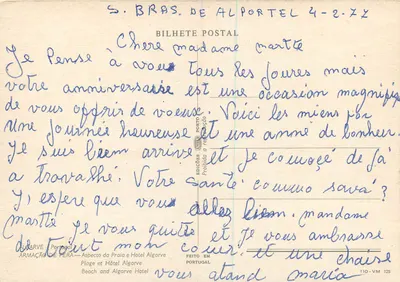 S. BRAS. DE ALPORTEL 4-2.77
BILHETE POSTAL
Chere madame martte
Je Pense à vous tous les joures mais
votre anniversaise est une occasion magnifiq
de vous offrir de voeuse. Voici les miens par
une journée heureuse et une anné de bonheur.
Je suis bièm arrive et je comoçé de já
a travalhé. Votre santé commo savá?
Y, espere que vous allez biem. mandame
martte je vous quitte et je vous ambrasse
de tout mon couer. et une chaise
ARMAÇÃO DE PERA - Aspecto da Praia e Hotel Algarve
Plage et Hôtel Algarve
Beach and Algarve Hotel
FEITO EM
PORTUGAL
110 - VM 120
vous atand maria